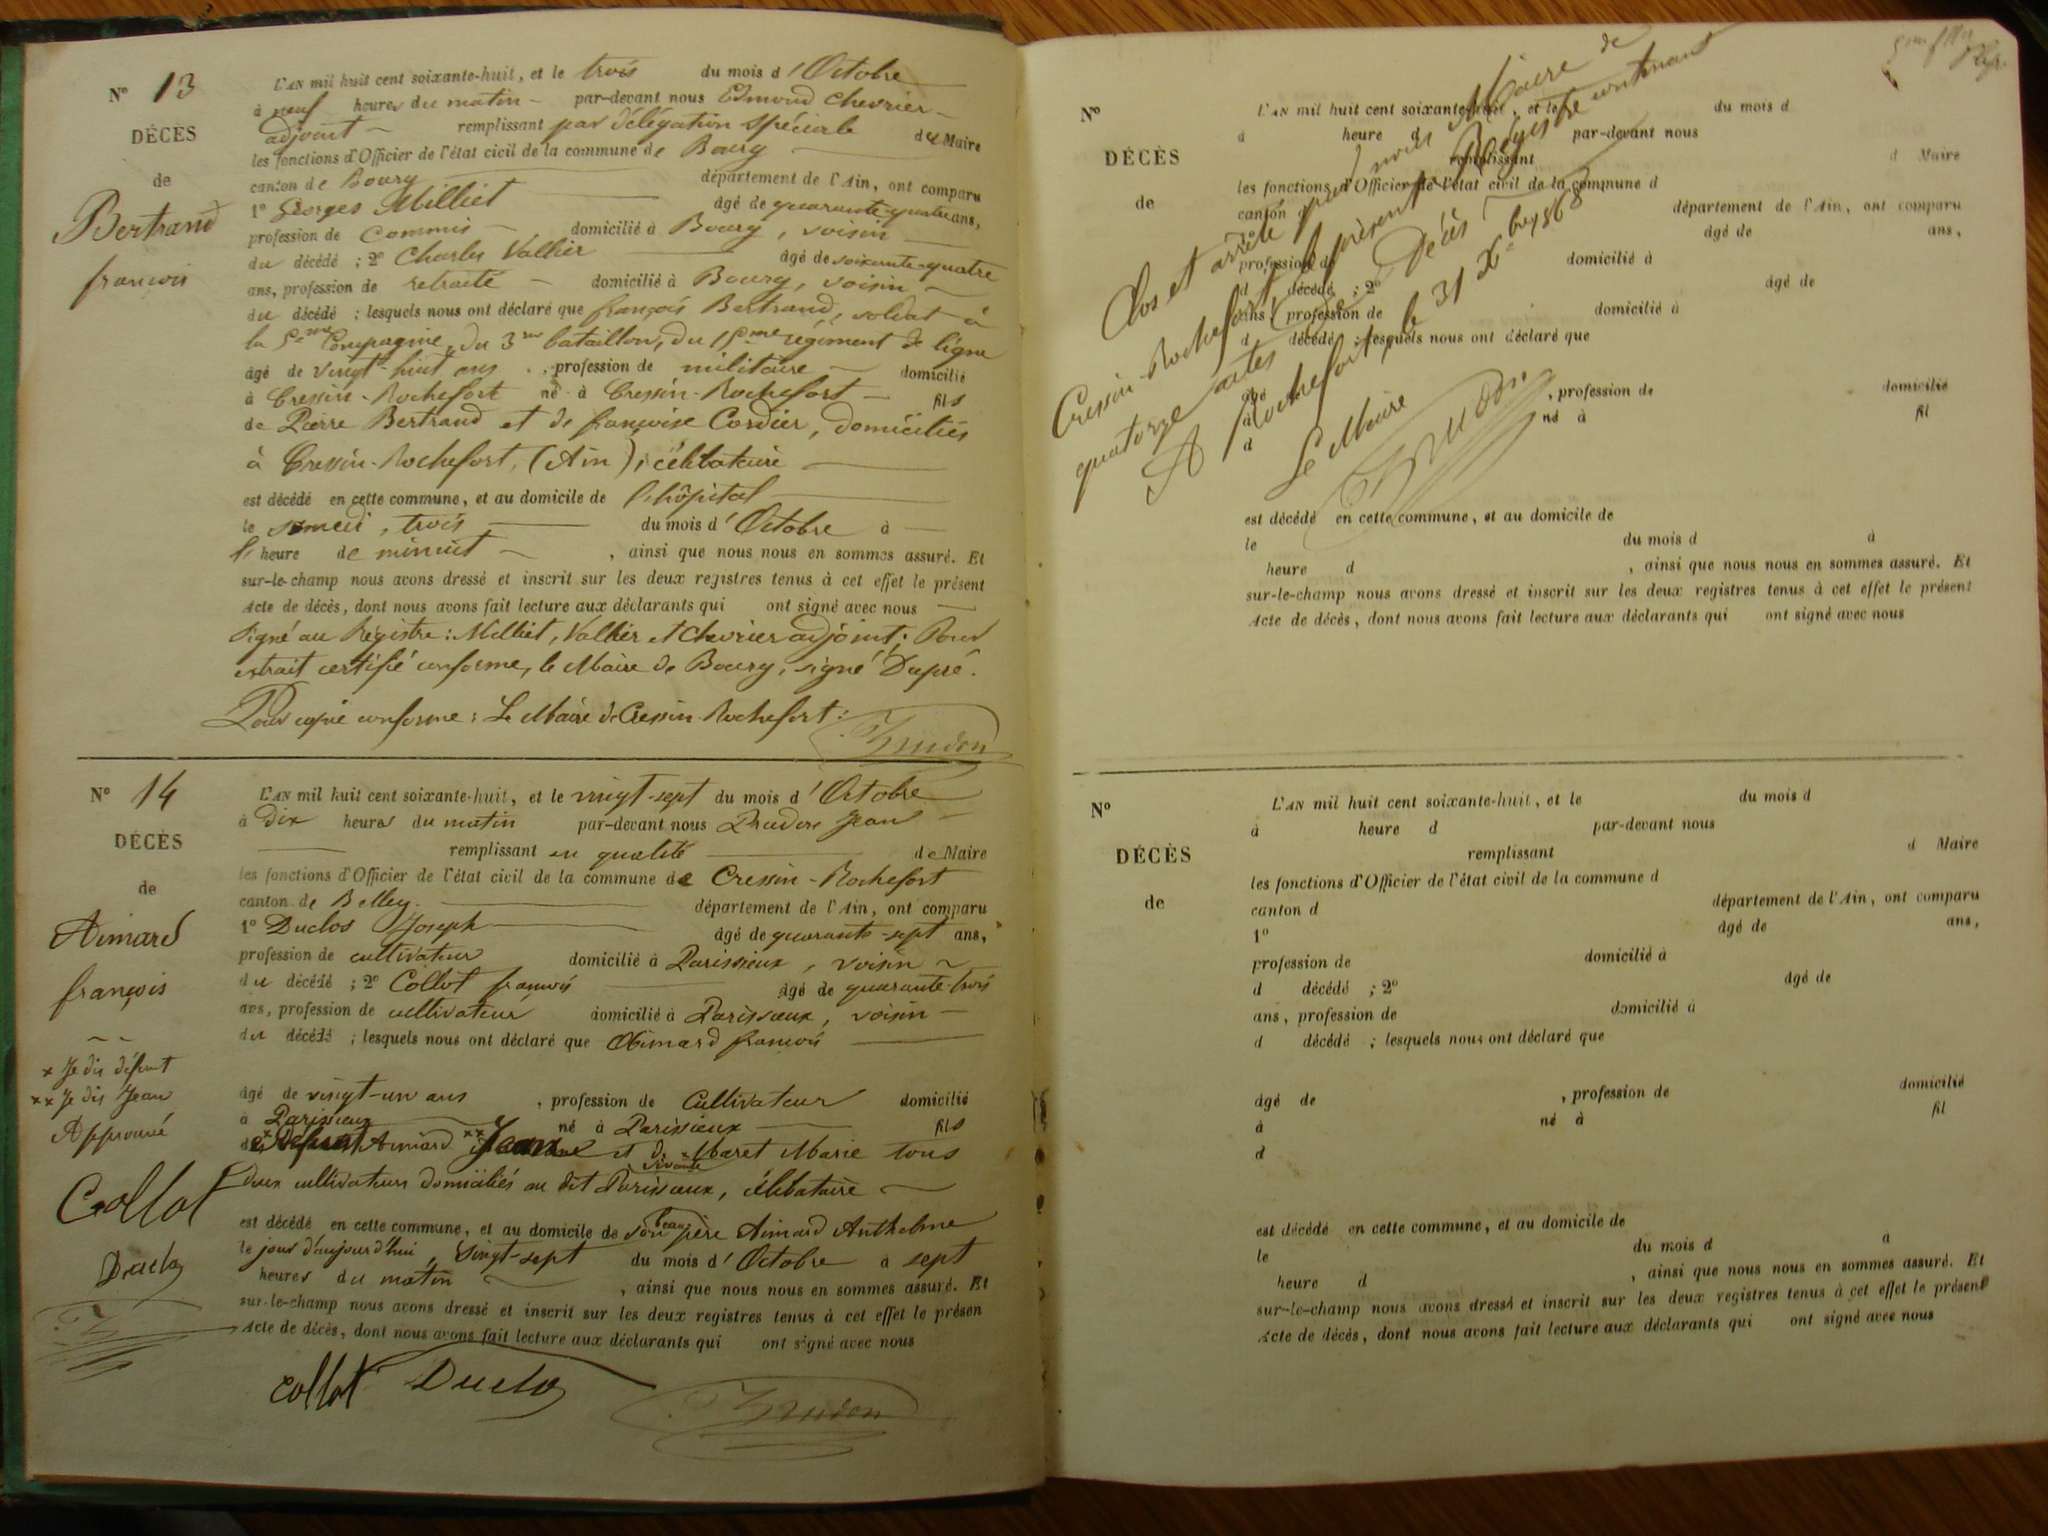 N° 13
DÉCÈS
de
Bertrand
françois
L'AN mil huit cent soixante-huit, et le trois du mois d'Octobre
à neuf heures du matin par-devant nous Edmond Chevrier
adjoint remplissant par délégation spéciale du Maire
les fonctions d'Officier de l'état cicil de la commune de Bourg
canton de Bourg département de l'Ain, ont comparu
1° Georges Milliet âgé de quarante-quatre ans,
profession de commis domicilié à Bourg, voisin
du décédé ; 2° Charles Vallier âgé de soixante-quatre
ans, profession de retraité domicilié à Bourg, voisin
du décédé ; lesquels nous ont déclaré que françois Bertrand, soldat à
la 5eme Compagnie, du 3me bataillon, du régiment de ligne
âgé de vingt-huit ans, profession de militaire domicilié
à Cressin-Rochefort né à Cressin-Rochefort fils
de Pierre Bertrand et de françoise Cordier, domiciliés
à Cressin-Rochefort, (Ain), célibataire
est décédé en cette commune, et au domicile de l'hôpital
le samedi, trois du mois d'Octobre à
l'heure de minuit, ainsi que nous nous en sommes assuré. Et
sur-le-champ nous avons dressé et inscrit sur les deux registres tenus à cet effet le présent
Acte de décès, dont nous avons fait lecture aux déclarants qui ont signé avec nous
Signé au Registre : Milliet, Vallier et Chevrier adjoint ; Pour
extrait certifié conforme, le Maire de Bourg, signé Dupré.
Pour copie conforme : Le Maire de Cressin-Rochefort :
Prudon
N° 14
DÉCÈS
de
Aimard
françois
x Je dis défunt
xx Je dis Jean
Approuvé
Collot
Duclos
L'AN mil huit cent soixante-huit, et le vingt-sept du mois d'Octobre
à Dix heures du matin par-devant nous Prudon Jean
remplissant en qualité de Maire
les fonctions d'Officier de l'état civil de la commune de Cressin-Rochefort
canton de Belley. département de l'Ain, ont comparu
1° Duclos Joseph âgé de quarante-sept ans,
profession de cultivateur domicilié à Parissieux, voisin
du décédé ; 2° Collot françois âgé de quarante-trois
ans, profession de cultivateur domicilié à Parissieux, voisin
du décédé ; lesquels nous ont déclaré que Aimard françois
âgé de vingt-un ans, profession de Cultivateur domicilié
à Parissieux né à Parissieux fils
de x Défunt Aimard xx Jean et de Maret Marie tous
vivante
deux cultivateurs domiciliés au dit Parissieux, célibataire
est décédé en cette commune, et au domicile de son beau père Aimard Anthelme
le jour d'aujourd'hui, vingt-sept du mois d'Octobre à sept
heures du matin, ainsi que nous nous en sommes assuré. Et
sur-le-champ nous avons dressé et inscrit sur les deux registres tenus à cet effet le présen
Acte de décès, dont nous avons fait lecture aux déclarants qui ont signé avec nous
Collot Duclos
Prudon
N°
DÉCÈS
de
L'AN mil huit cent soixante-huit, et le du mois d
à heure d par-devant nous
remplissant d Maire
les fonctions d'Officier de l'état civil de la commune d
canton d département de l'Ain, ont comparu
âgé de ans,
profession de domicilié à
d décédé ; 2° âgé de
ans, profession de domicilié à
d décédé ; lesquels nous ont déclaré que
âgé de , profession de domicilié
à né à fil
d
est décédé en cette commune, et au domicile de
le du mois d à
heure d , ainsi que nous nous en sommes assuré. Et
sur-le-champ nous avons dressé et inscrit sur les deux registres tenus à cet effet le présent
Acte de décès, dont nous avons fait lecture aux déclarants qui ont signé avec nous
Clos et arrêté par nous Maire de
Cressin-Rochefort, le présent Registre contenant
quatorze actes de Décès
A Rochefort, le 31 Xbre 1868
Le Maire
Prudon
N°
DÉCÈS
de
L'AN mil huit cent soixante-huit, et le du mois d
à heure d par-devant nous
remplissant d Maire
les fonctions d'Officier de l'état civil de la commune d
canton d département de l'Ain, ont comparu
1° âgé de ans,
profession de domicilié à
d décédé ; 2° âgé de
ans, profession de domicilié à
d décédé ; lesquels nous ont déclaré que
âgé de , profession de domicilié
à né à fil
d
est décédé en cette commune, et au domicile de
le du mois d à
heure d , ainsi que nous nous en sommes assuré. Et
sur-le-champ nous avons dressé et inscrit sur les deux registres tenus à cet effet le présent
Acte de décès, dont nous avons fait lecture aux déclarants qui ont signé avec nous